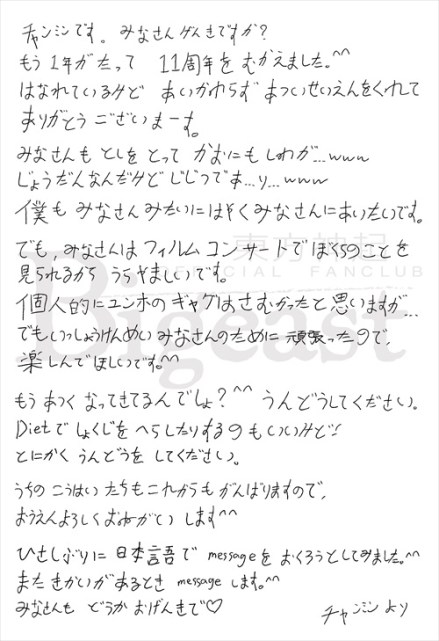 チャンミンです。みなさんげんきですか?
もう1年がたって 11周年を むかえました。^^
はなれているけど あいかわらず あついせいえんをくれて
ありがとう ございまーす。
みなさんも としを とって かおにも しわが...www
じょうだんなんだけど じじつです...り...www
僕も みなさんみたいにはやくみなさんにあいたいです。
でも、みなさんは フィルム コンサートで ぼくらのことを
見られるから うらやましいです。
個人的にユンホのギャグはさむかったと思いますが...
でもいっしょうけんめい みなさんのために 頑張ったので、
楽しんでほしいです^^
もう あつく なってきてるんでしょ?^^ うんどうしてください。
Dietで しょくじを へらしたりするのもいいけど!
とにかく うんどうを してください。
うちの こうはい たちも これからも がんばりますので、
おうえんよろしく おねがい します^^
ひさしぶりに 日本言語で messageを おくろうとしてみました。^^
また きかいが あるとき message します。^^
みなさんも どうか おげんきで♡
チャンミン より
東方神起
OFFICIAL FANCLUB
Bigeast